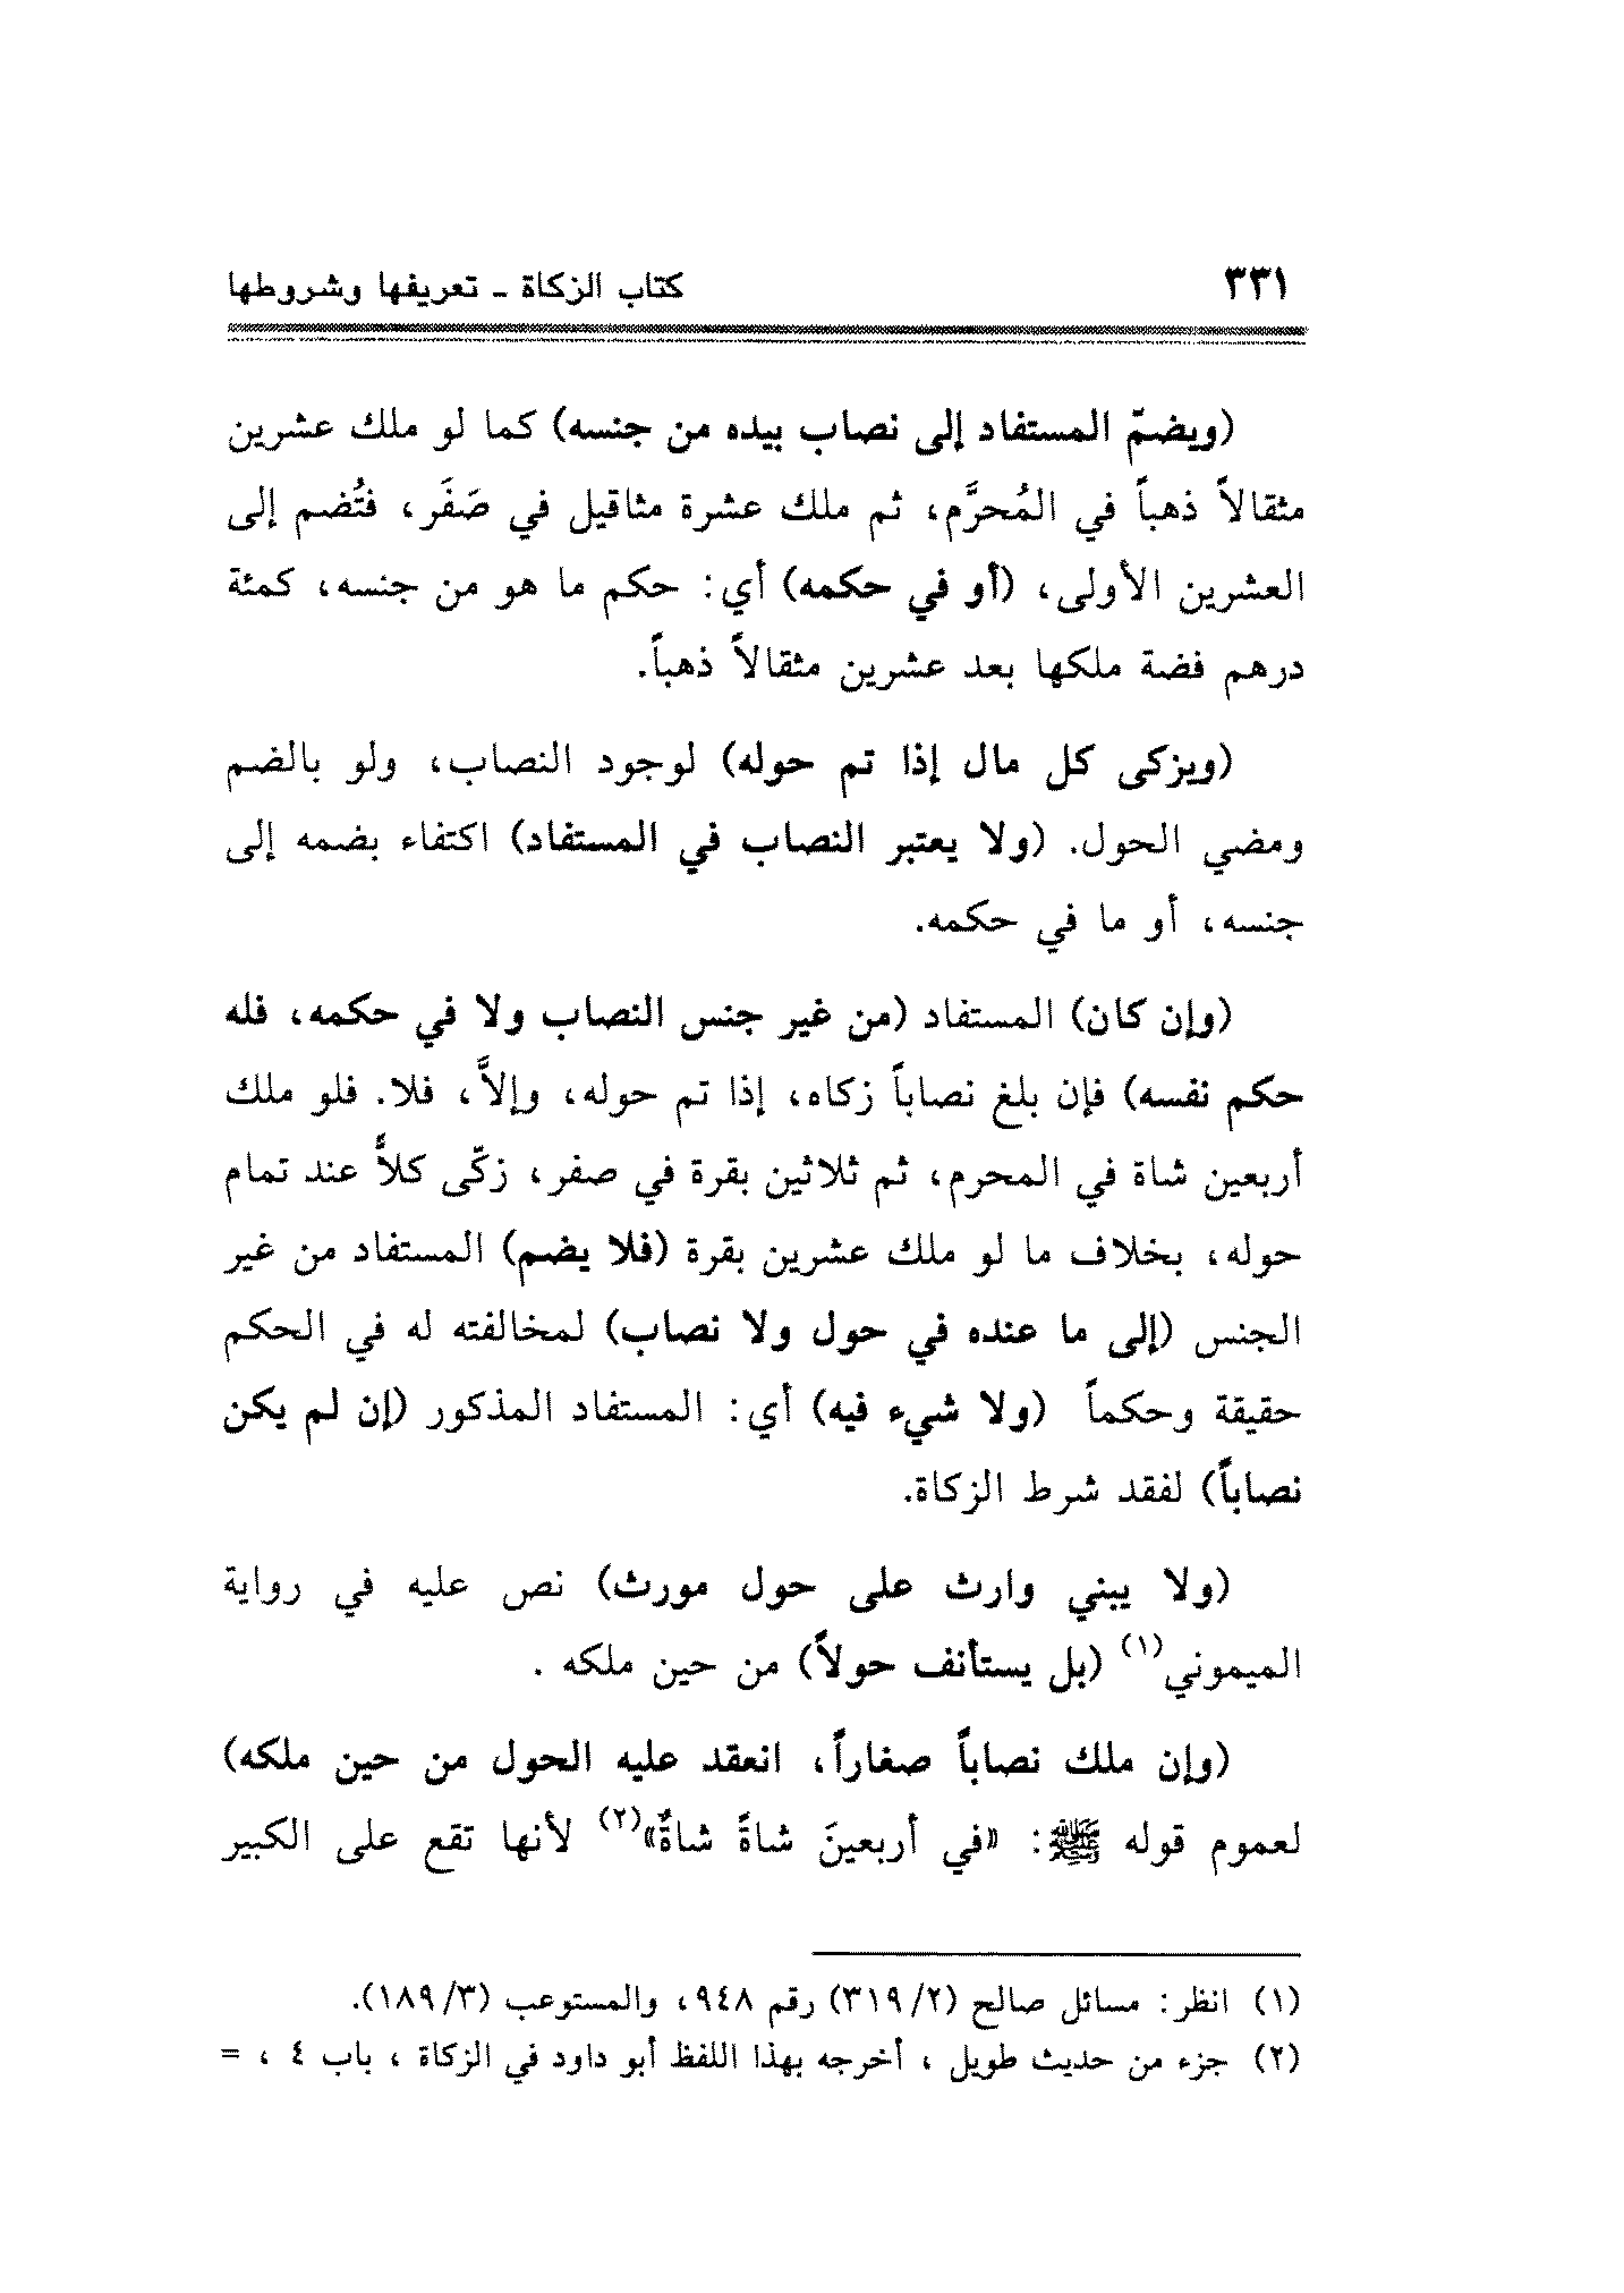 ٣٣١ كتاب الزكاة ـ تعريفها وشروطها
(ويضمّ المستفاد إلى نصاب بيده من جنسه) كما لو ملك عشرين
مثقالاً ذهباً في المُحرَّم، ثم ملك عشرة مثاقيل في صَفَر، فتُضم إلى
العشرين الأولى، (أو في حكمه) أي: حكم ما هو من جنسه، كمئة
درهم فضة ملكها بعد عشرين مثقالاً ذهباً.
(ويزكى كل مال إذا تم حوله) لوجود النصاب، ولو بالضم
ومضي الحول. (ولا يعتبر النصاب في المستفاد) اكتفاء بضمه إلى
جنسه، أو ما في حكمه.
(وإن كان) المستفاد (من غير جنس النصاب ولا في حكمه، فله
حكم نفسه) فإن بلغ نصاباً زكاه، إذا تم حوله، وإلاَّ، فلا. فلو ملك
أربعين شاة في المحرم، ثم ثلاثين بقرة في صفر، زكّى كلاًّ عند تمام
حوله، بخلاف ما لو ملك عشرين بقرة (فلا يضم) المستفاد من غير
الجنس (إلى ما عنده في حول ولا نصاب) لمخالفته له في الحكم
حقيقة وحكماً (ولا شيء فيه) أي: المستفاد المذكور (إن لم يكن
نصاباً) لفقد شرط الزكاة.
(ولا يبني وارث على حول مورث) نص عليه في رواية
الميموني(١) (بل يستأنف حولاً) من حين ملكه .
(وإن ملك نصاباً صغاراً، انعقد عليه الحول من حين ملكه)
لعموم قوله ﷺ: «في أربعينَ شاةً شاةٌ»(٢) لأنها تقع على الكبير
(١) انظر: مسائل صالح (٣١٩/٢) رقم ٩٤٨، والمستوعب (١٨٩/٣).
(٢) جزء من حديث طويل ، أخرجه بهذا اللفظ أبو داود في الزكاة ، باب ٤ ، =